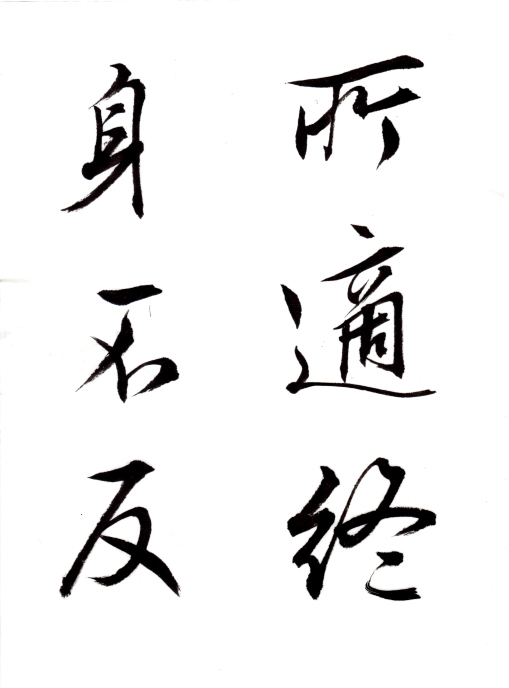 所適終
身不反